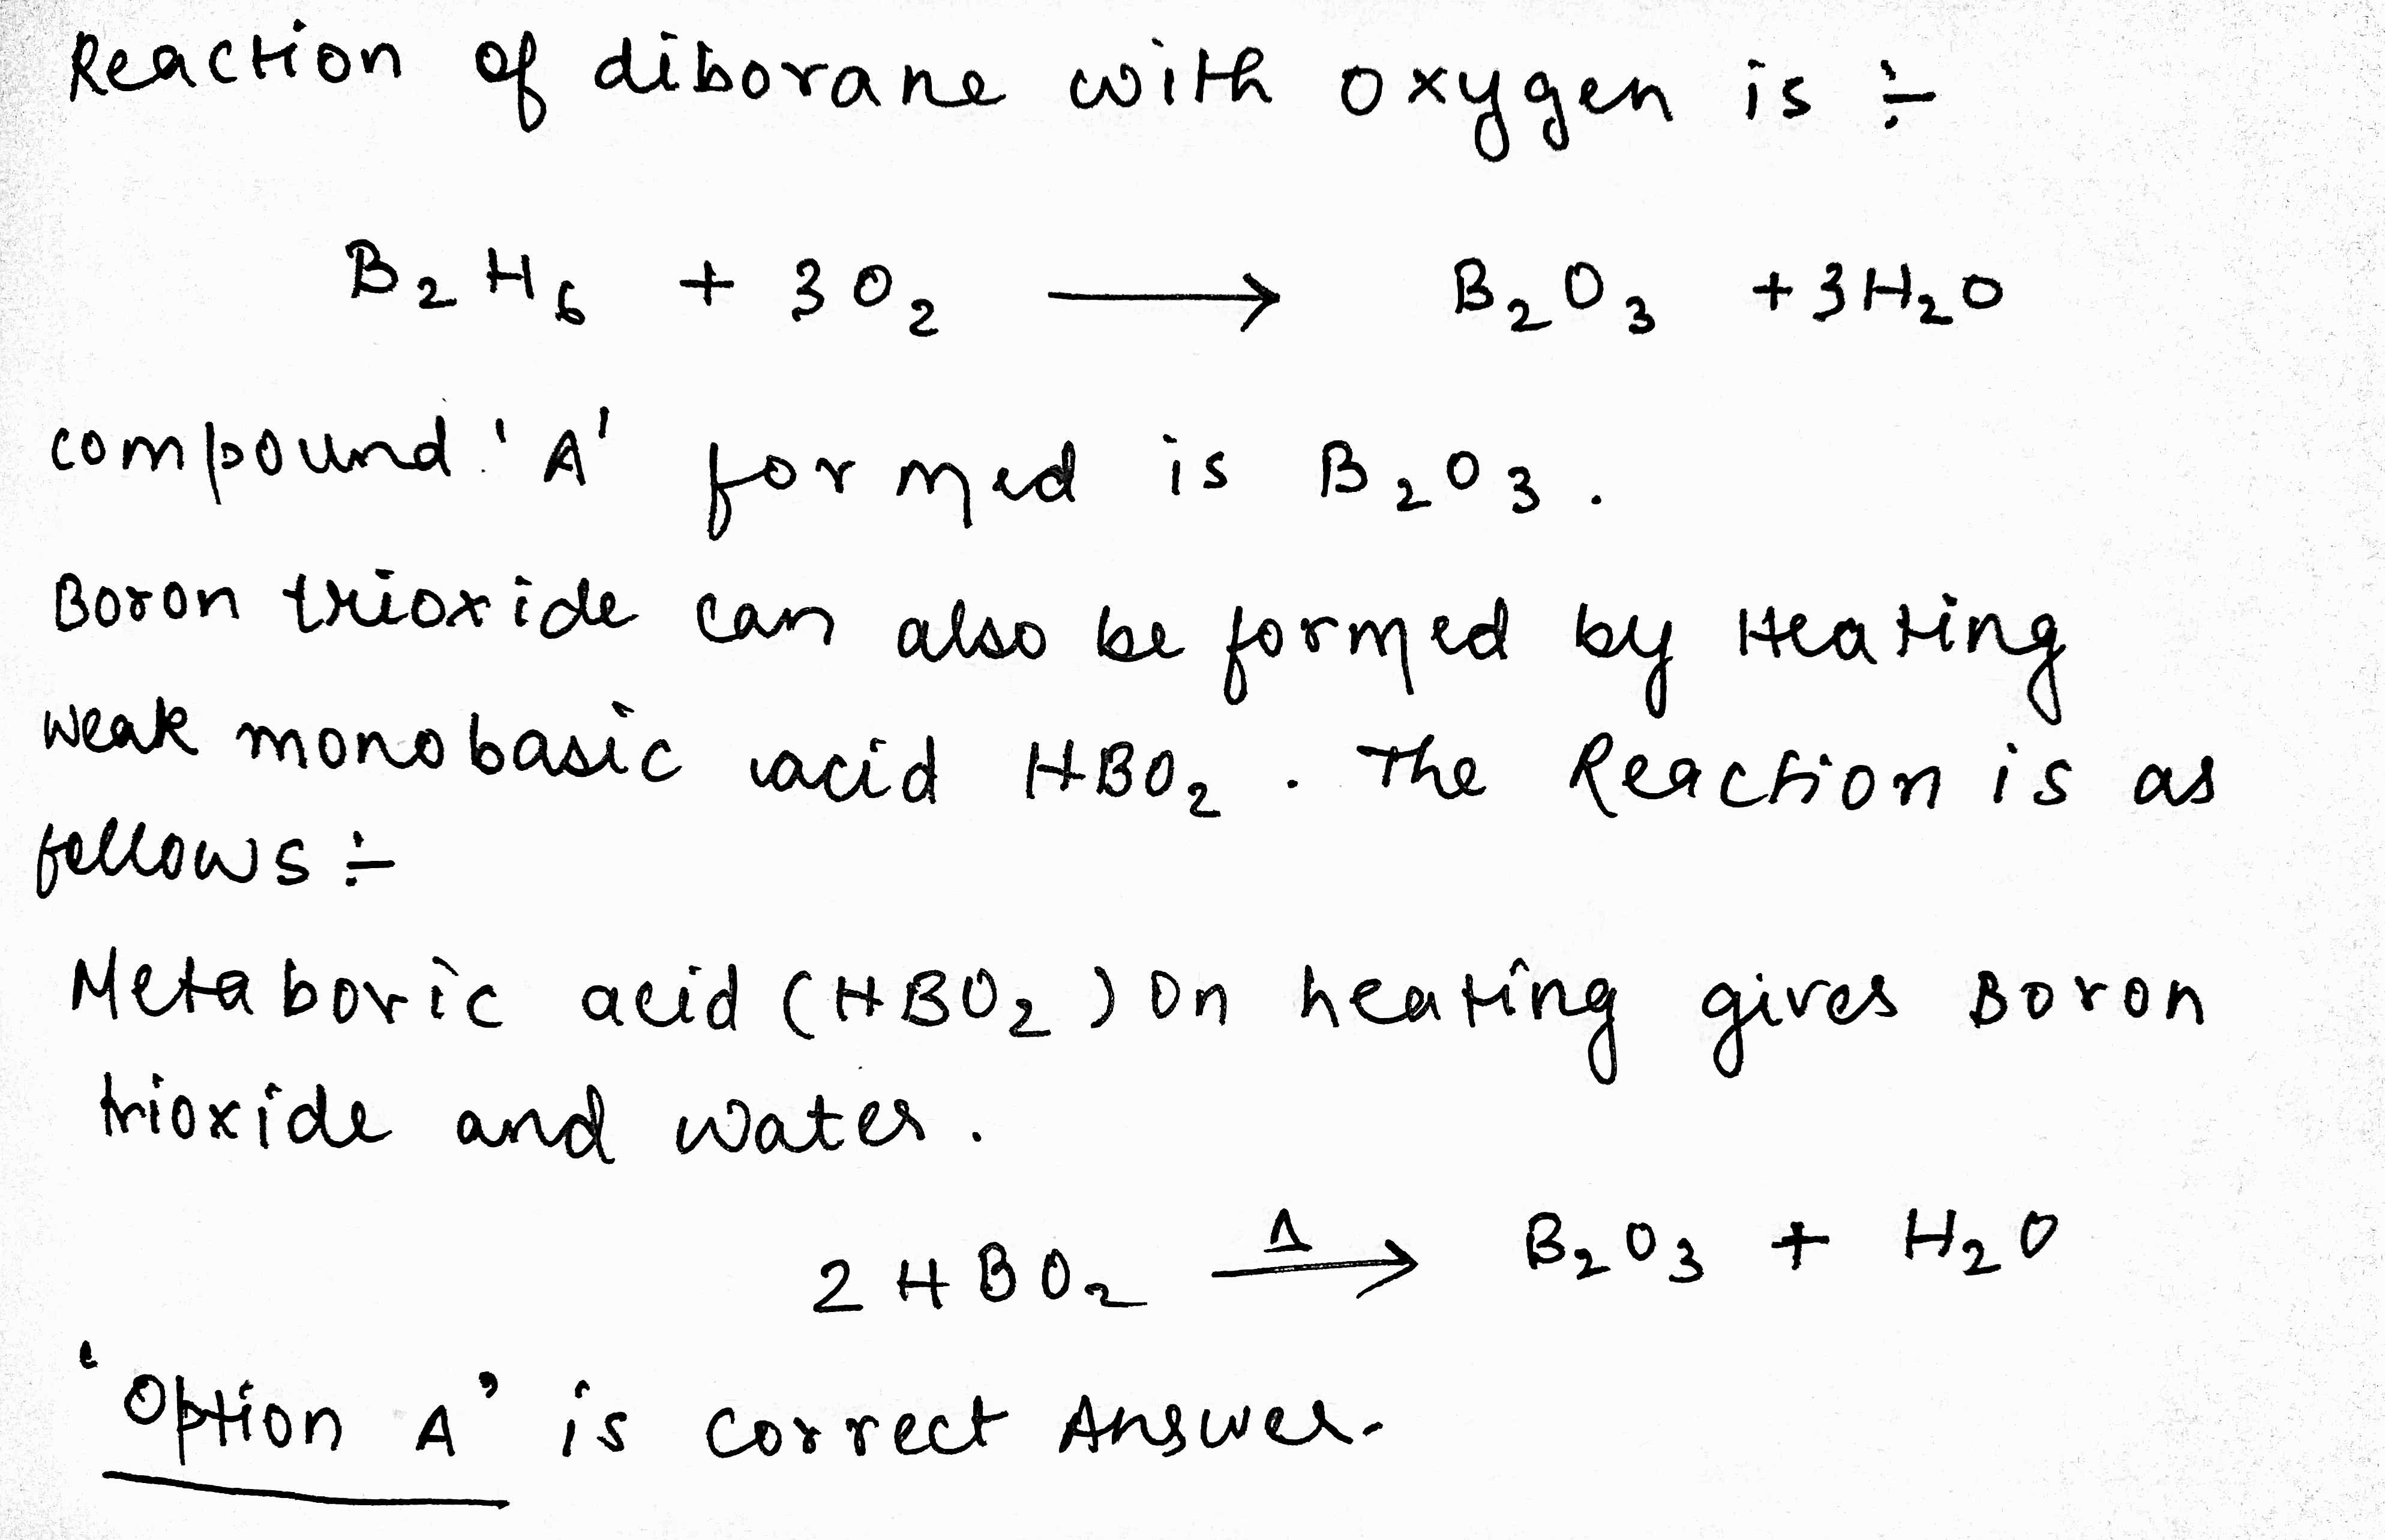 Reaction of diborane with oxygen is :-
B₂H₆ + 3O₂ ⟶ B₂O₃ + 3H₂O
compound 'A' formed is B₂O₃.
Boron trioxide can also be formed by Heating
weak monobasic acid HBO₂. The Reaction is as
follows :-
Metaboric acid (HBO₂) on heating gives Boron
trioxide and water.
2HBO₂ —Δ→ B₂O₃ + H₂O
'Option A' is correct Answer.